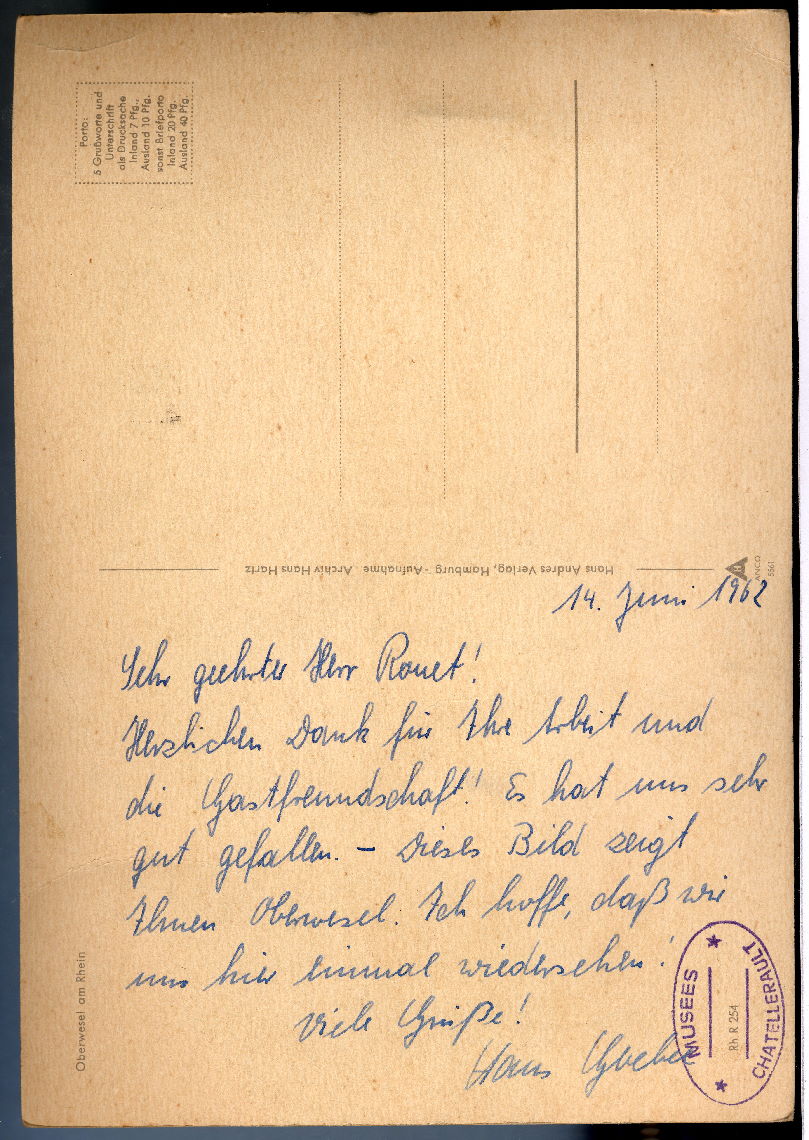 Porto:
5 Grußworte und
Unterschrift
als Drucksache
Inland 7 Pfg.
Ausland 10 Pfg.
sonst Briefporto
Inland 20 Pfg.
Ausland 40 Pfg.
Hans Andres Verlag, Hamburg - Aufnahme: Archiv Hans Hartz
ANCO
5561
14. Juni 1962
Sehr geehrter Herr Rouet!
Herzlichen Dank für Ihre Arbeit und
die Gastfreundschaft! Es hat uns sehr
gut gefallen. – Dieses Bild zeigt
Ihnen Oberwesel. Ich hoffe, daß wir
uns hier einmal wiedersehen!
Viele Grüße!
Hans
Oberwesel am Rhein
MUSEES
Rh R 254
CHATELLERAULT